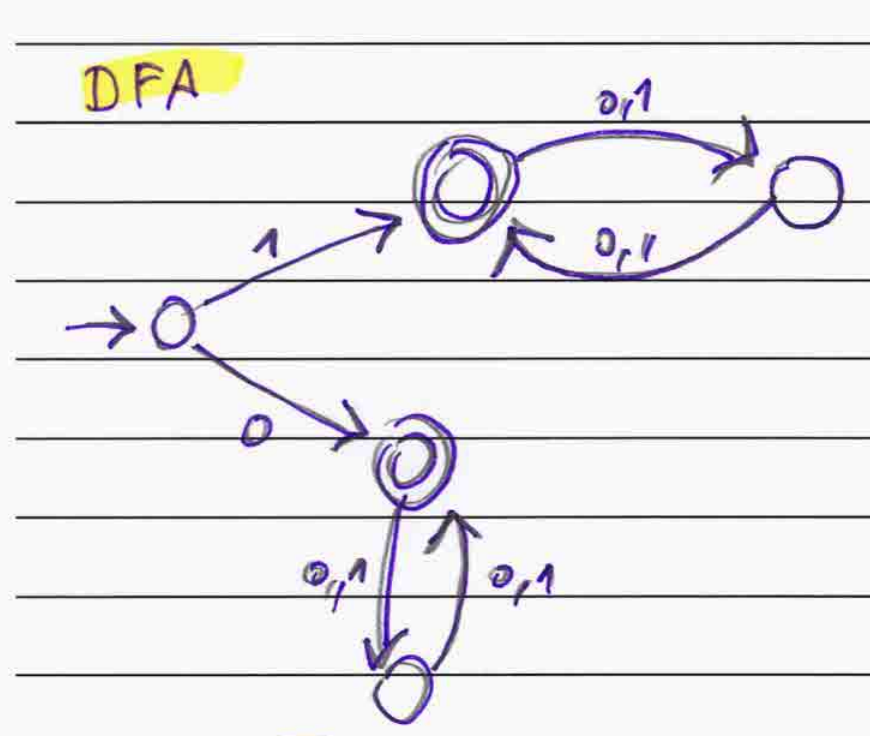 DFA
0,1
1
0,1
0
0,1 0,1